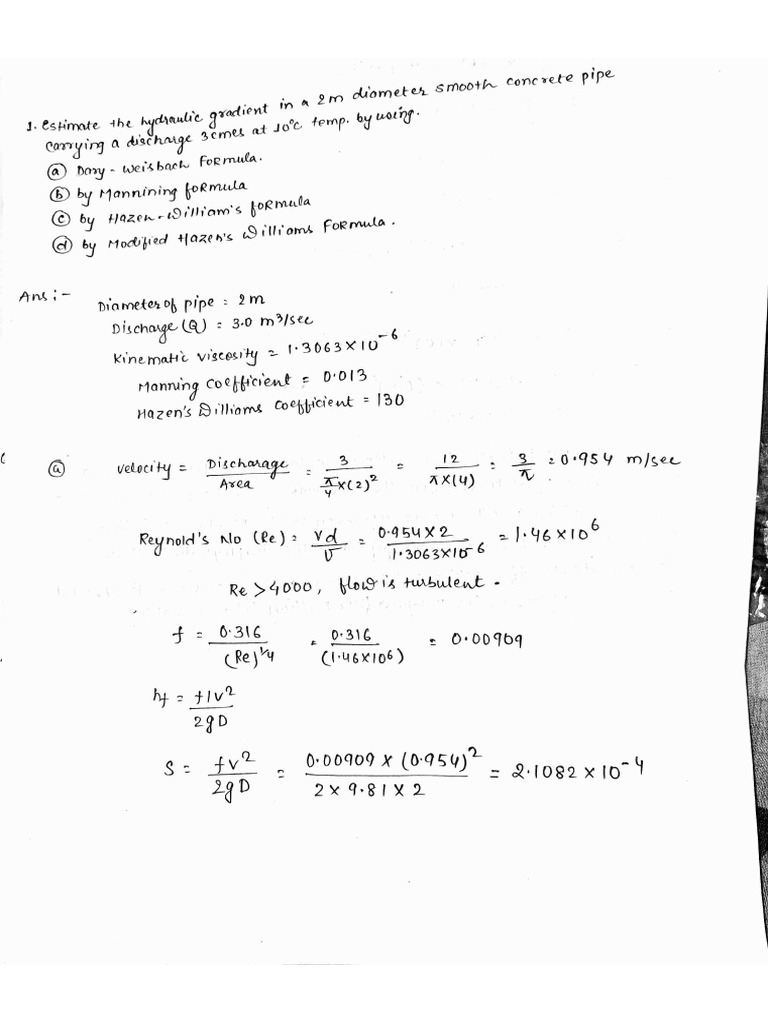 1. Estimate the hydraulic gradient in a 2m diameter smooth concrete pipe
Carrying a discharge 3cmes at 10°c temp. by using.
(a) Dary - Weisbach Formula.
(b) by Mannining formula
(c) by Hazen-William's formula
(d) by Modified Hazen's Williams Formula.
Ans :-
Diameter of pipe = 2m
Discharge (Q) = 3.0 m³/sec
Kinematic viscosity = 1.3063 × 10⁻⁶
Manning coefficient = 0.013
Hazen's Williams coefficient = 130
(a) Velocity = Discharage / Area = 3 / (π/4 × (2)²) = 12 / (π × (4)) = 3/π = 0.954 m/sec
Reynold's No (Re) = Vd / ν = 0.954 × 2 / 1.3063 × 10⁻⁶ = 1.46 × 10⁶
Re > 4000, flow is turbulent.
f = 0.316 / (Re)^1/4 = 0.316 / (1.46×10⁶) = 0.00909
hf = flv² / 2gD
S = fv² / 2gD = 0.00909 × (0.954)² / 2 × 9.81 × 2 = 2.1082 × 10⁻⁴